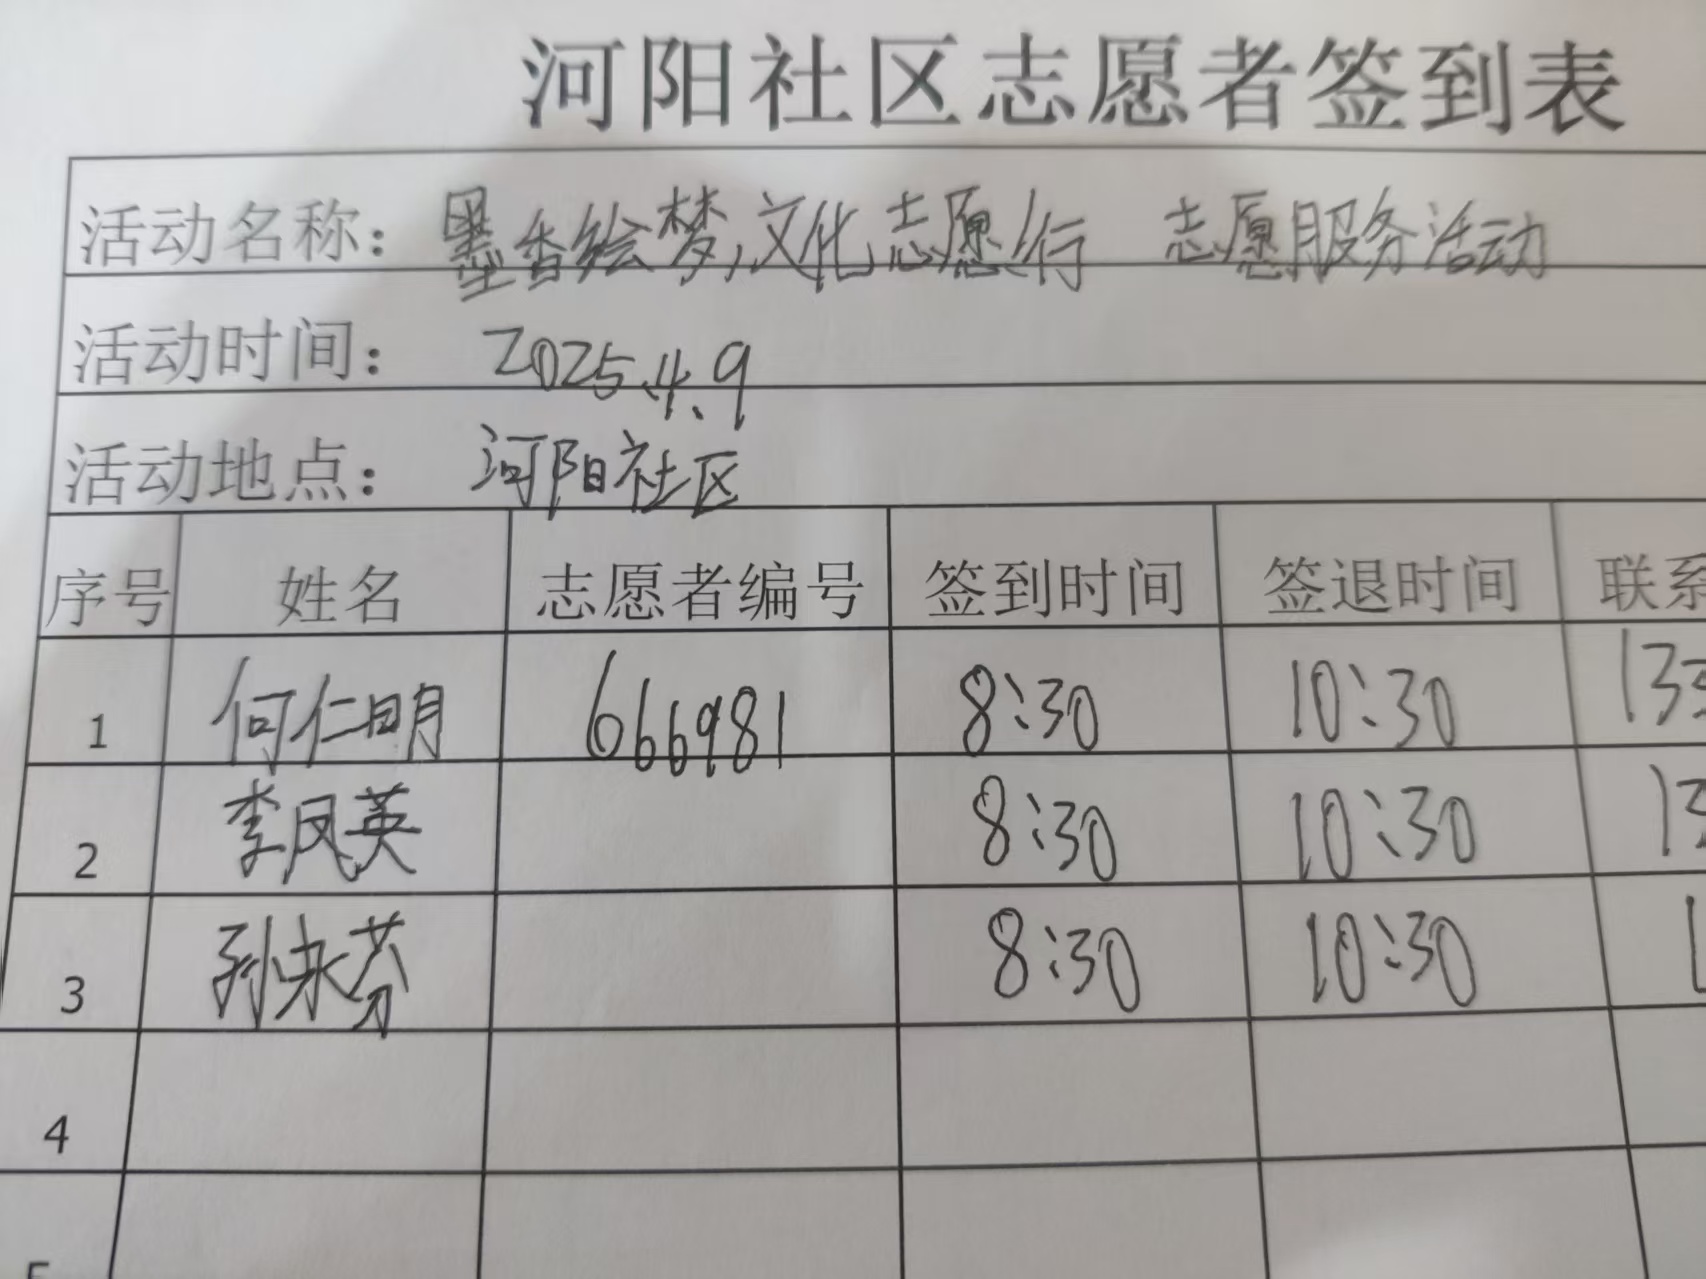 河阳社区志愿者签到表
活动名称：墨香绘梦,文化志愿行 志愿服务活动
活动时间： 2025.4.9
活动地点： 河阳社区
序号 姓名 志愿者编号 签到时间 签退时间 联系
1 何仁明 666981 8:30 10:30 133
2 李凤英 8:30 10:30 13
3 孙永芬 8:30 10:30 1
4
5